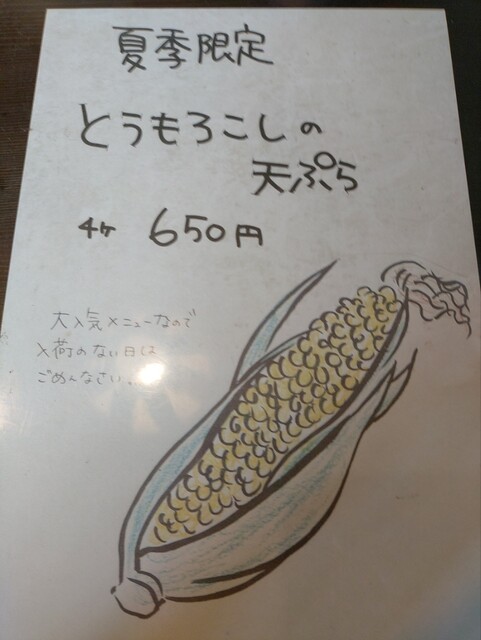 夏季限定
とうもろこしの
天ぷら
4ヶ 650円
大人気メニューなので
入荷のない日は
ごめんなさい。